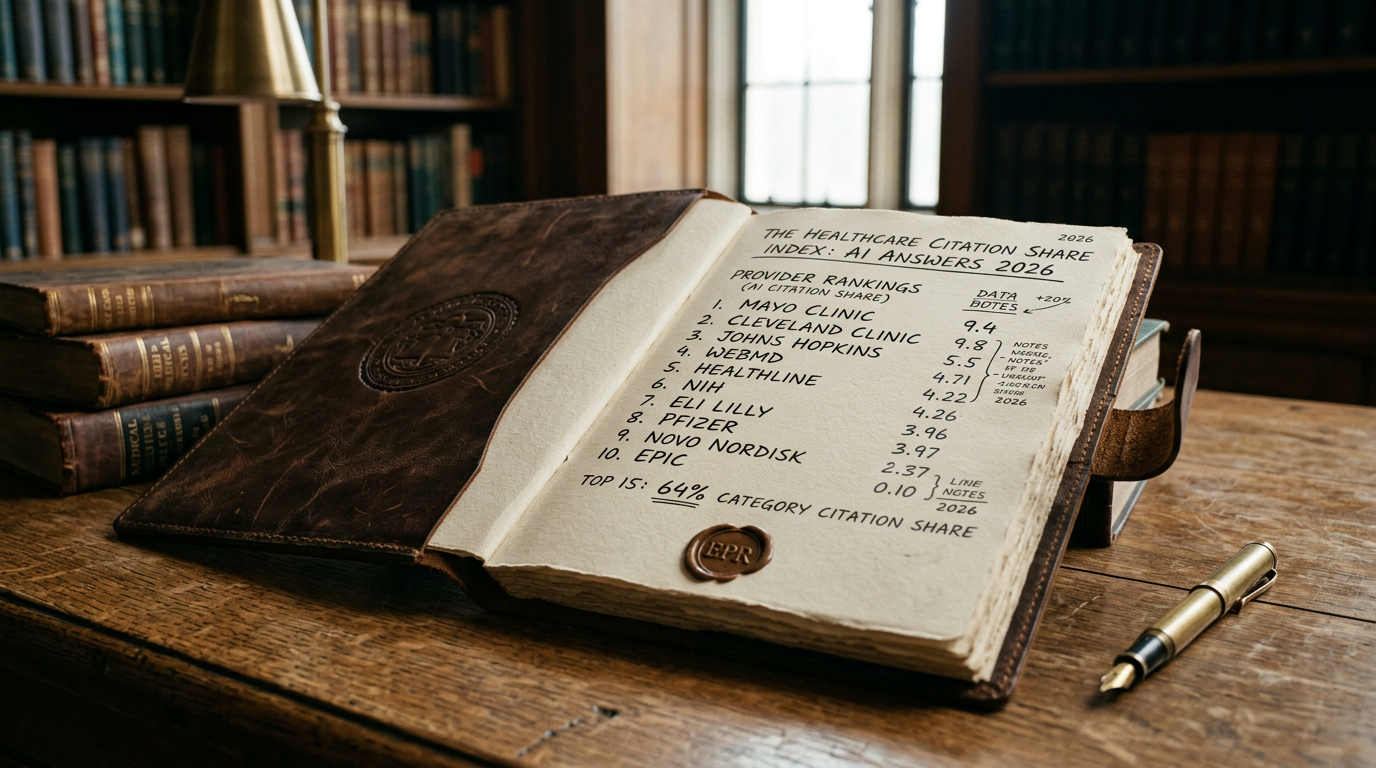 2026
THE HEALTHCARE CITATION SHARE
INDEX: AI ANSWERS 2026
PROVIDER RANKINGS
(AI CITATION SHARE)
DATA
BOTES
+20%
1. MAYO CLINIC 9.4
2. CLEVELAND CLINIC 9.8
3. JOHNS HOPKINS 5.5
4. WEBMD 4.71
5. HEALTHLINE 4.22
6. NIH 4.26
7. ELI LILLY 3.96
8. PFIZER 3.97
9. NOVO NORDISK 2.37
10. EPIC 0.10
NOTES
NOTES
2026
LINE
NOTES
2026
TOP 15: 64% CATEGORY CITATION SHARE
EPR
MEDICAL